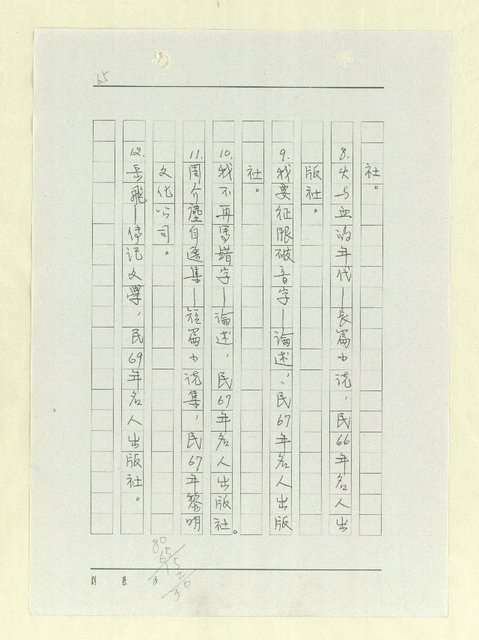 65
社。
8.火与血的年代—長篇小说，民66年名人出
版社。
9.我要征服破音字—論述，民67年名人出版
社。
10.我不再写错字—論述，民67年名人出版社。
11.周介塵自選集—短篇小说集，民67年黎明
文化公司。
12.岳飛—傳记文學，民69年名人出版社。